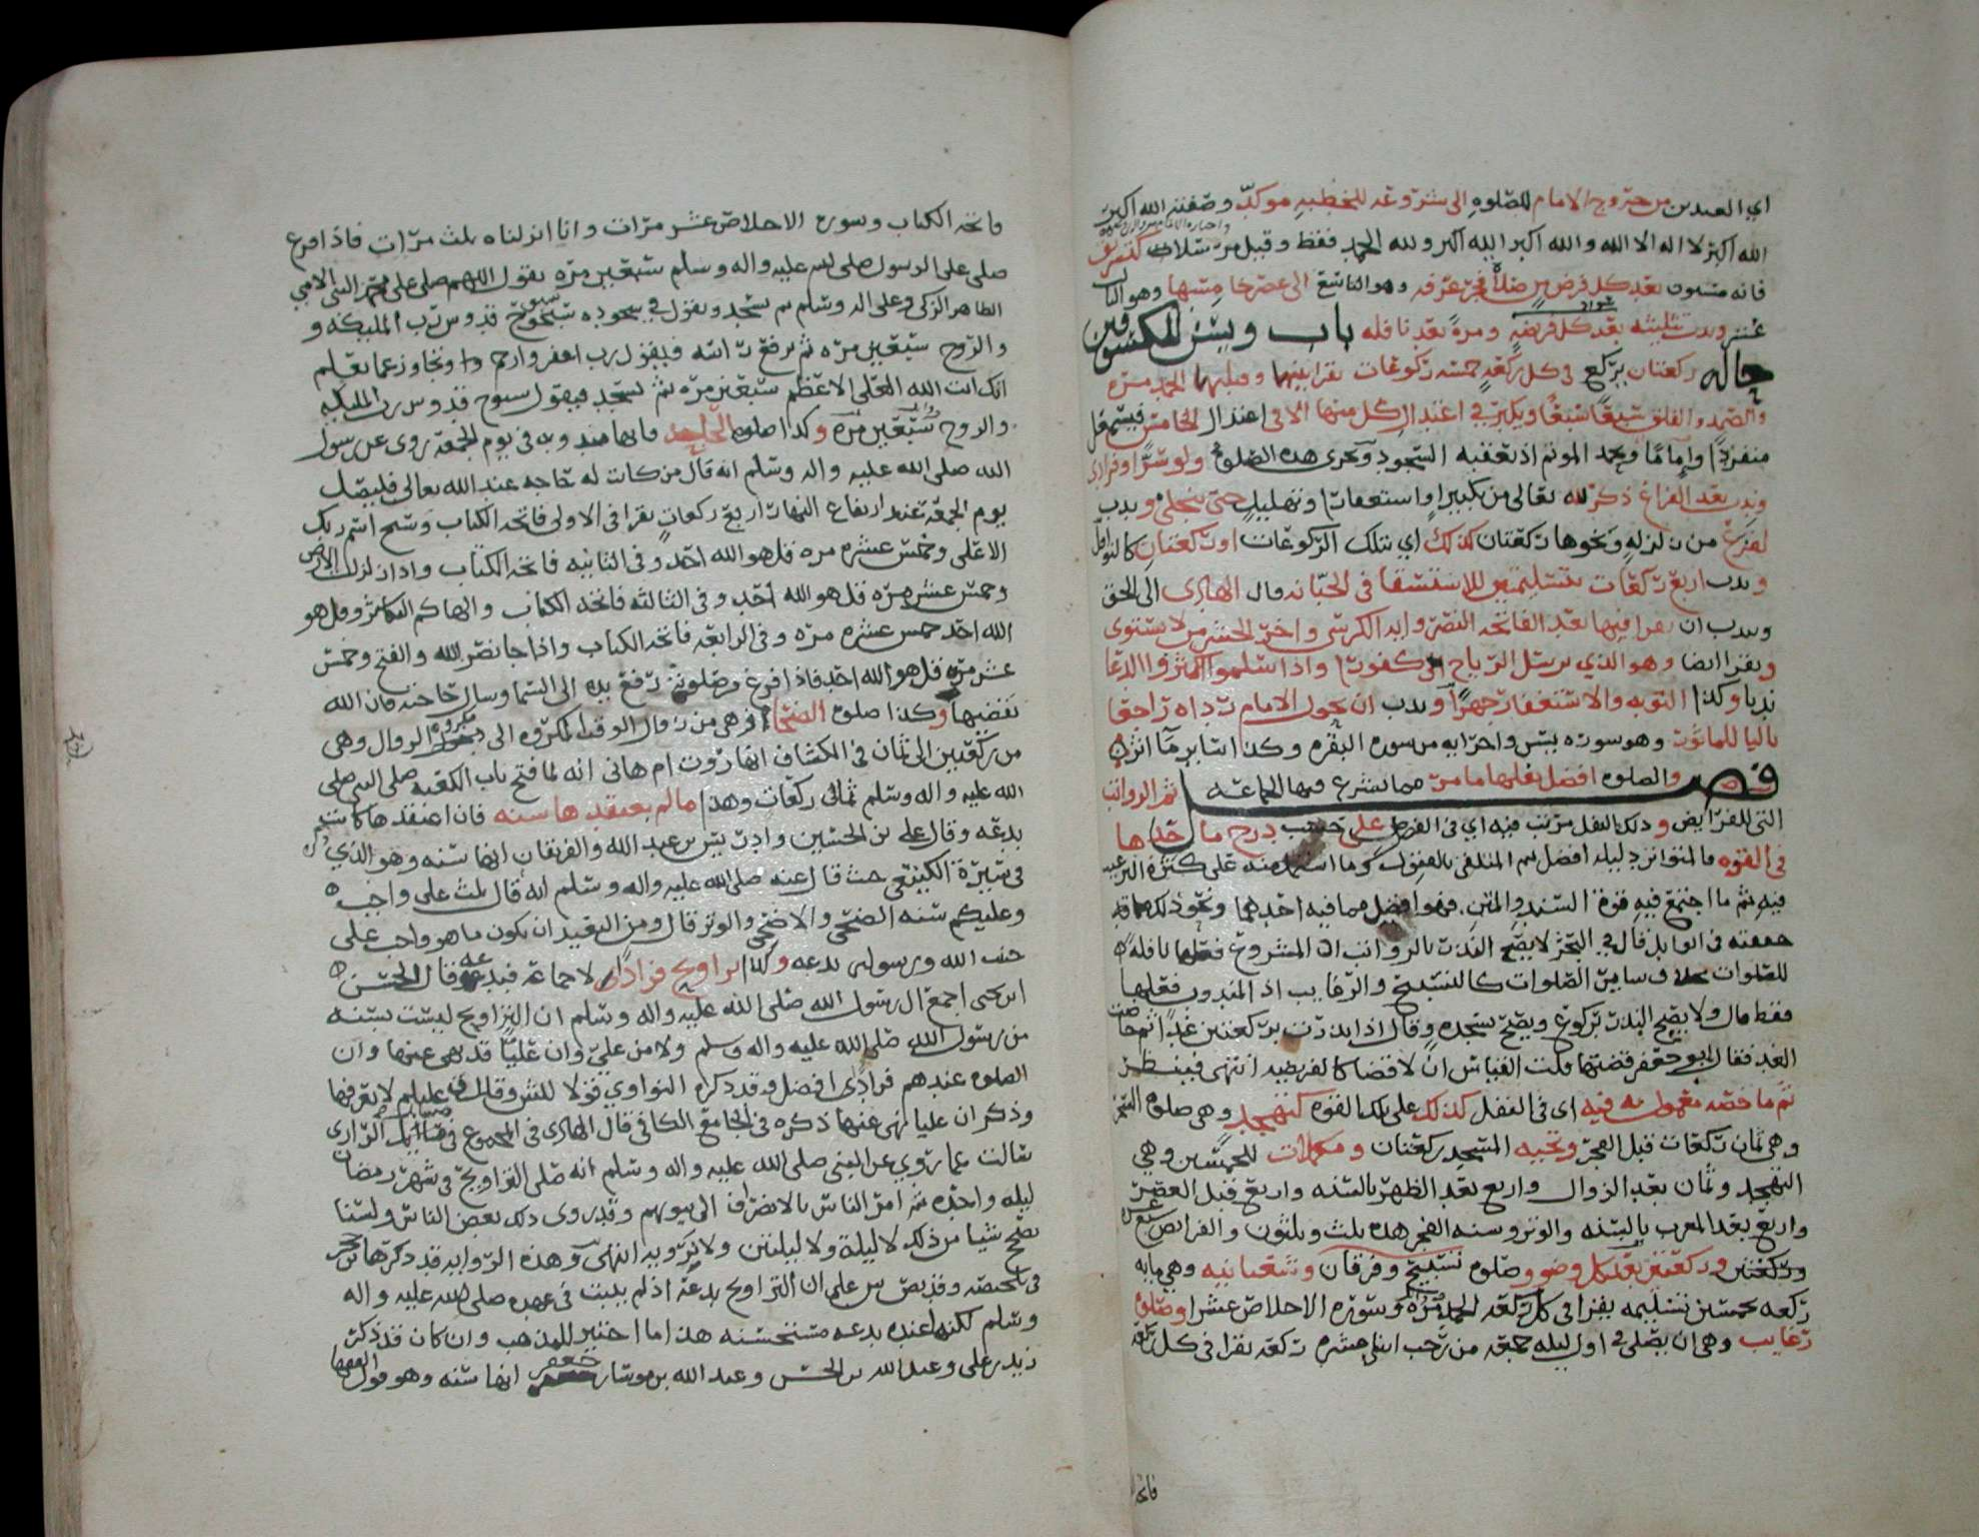 اي العيدين من خروج الامام للصلوه الى شروعه للخطبه موكد وصفته الله اكبر
الله اكبر لا اله الا الله والله اكبر الله اكبر ولله الحمد فقط وقبل من سلام
فانه مسنون بعد كل فرض من صلاة فجر عرفه وهو التاسع الى عصر خامسها وهو الثالث
عشر وندب تثليثه بعد كل فريضه ومرة بعد نافله باب ويسن للكسوفين
حاله ركعتان يركع في كل ركعه خمسه ركوعات يقرا بينها وقبلها الحمد مره
والصمد والفلق سبعًا سبعًا ويكبر في اعتدال كل منها الا في اعتدال الخامس فيسمعل
منفردًا وإمامًا ويحمد الموتم اذ يعقبه السجود ويجزى هذه الصلوه ولو سرًا وفرادى
وندب بعد الفراغ ذكر لله تعالى من تكبير واستغفار وتهليل حتى ينجلي وندب
لفزع من زلزله ونحوها ركعتان كذلك اي بتلك الركوعات او ركعتان كالنوافل
وندب اربع ركعات بتسليمتين للاستسقا في الجبانه قال الهادى الى الحق
وندب ان يقرا فيها بعد الفاتحه النصر وايه الكرسي واخر الحشر من لا يستوى
ويقرا ايضا وهو الذي يرسل الرياح الى كفورا واذا سلموا اكثروا الدعا
ندبا وكذا التوبه والاستغفار جهرًا وندب ان يحول الامام رداه راجعا
تاليا للماثور وهو سوره يس واخر ايه من سوره البقره وكذا سائر ما اثر
فصل والصلوه افضل نفلها ما مر مما يشرع فيها الجماعه ثم الرواتب
التي للفرايض وذلك النفل مرتب فيه اي في الفضل على حسب درج ما لحد ها
في القوه فالمتواتر دليله افضل ثم المتلقى بالقبول وما اشتمله منه على كثره الترغيب
فيه ثم ما اجتمع فيه قوة السند والمتن فهو افضل مما فيه احدهما ونحو ذلك مما قد
حققته في الوابل قال في البحر لا يصح النذر بالرواتب اذ المشروع فعلها نافله
للصلوات بخلاف ساير الصلوات كالتسبيح والرغايب اذ المندوب فعلها
فقط قال ولا يصح النذر بركوع ويصح بسجده وقال اذا نذرت بركعتين غدًا ثم حاضت
الغد فقال ابو جعفر قضتها قلت القياس ان لا قضا كالفريضه انتهى فينظر
ثم ما خصه معمول به فيه اى في النفل كذلك على تلك القوه كتهجد وهي صلوه السحر
وهي ثمان ركعات قبل الفجر وتحيه المسجد ركعتان ومكملات للخمسين وهي
التهجد وثمان بعد الزوال واربع بعد الظهر بالسنه واربع قبل العصر
واربع بعد المغرب بالسنه والوتر وسنه الفجر هذه ثلث وثلثون والفرايض سبع عشره
وركعتين وركعتين بعد كل وضوء وصلوه تسبيح وفرقان وشعبانيه وهي مايه
ركعه بخمسين تسليمه يقرا في كل ركعه الحمد مره وسوره الاخلاص عشرا وصلوة
رغايب وهي ان يصلى في اول ليله جمعه من رجب اثنى عشره ركعه يقرا في كل ركعه
فاتحه
فاتحه الكتاب وسوره الاخلاص عشر مرات وانا انزلناه ثلث مرات فاذا فرغ
صلى على الرسول صلى الله عليه واله وسلم سبعين مره يقول اللهم صلى على محمد النبي الامي
الطاهر الزكي وعلى اله وسلم ثم يسجد ويقول في سجوده سبوح قدوس رب المليكه و
والروح سبعين مره ثم يرفع راسه فيقول رب اغفر وارحم وتجاوز عما تعلم
انك انت الله العلي الاعظم سبعين مره ثم يسجد فيقول سبوح قدوس رب المليكه
والروح سبعين مره وكذا صلوه الحاجه فانها مندوبه في يوم الجمعه روى عن رسول
الله صلى الله عليه واله وسلم انه قال من كانت له حاجه عند الله تعالى فليصل
يوم الجمعه عند ارتفاع النهار اربع ركعات يقرا في الاولى فاتحه الكتاب وسبح اسم ربك
الاعلى وخمس عشره مره قل هو الله احد وفي الثانيه فاتحه الكتاب واذا زلزلت الارض
وخمس عشره مره قل هو الله احد وفي الثالثه فاتحه الكتاب والهاكم التكاثر وقل هو
الله احد خمس عشره مره وفي الرابعه فاتحه الكتاب واذا جا نصر الله والفتح وخمس
عشر مره قل هو الله احد فاذا فرغ من صلوته رفع يده الى السما وسال حاجته فان الله
يقضيها وكذا صلوه الضحا فرهي من زوال الوقت المكروه الى دخول مكروه الزوال وهي
من ركعتين الى ثمان في الكشاف انها روت ام هاني انه لما فتح باب الكعبه صلى النبي صلى
الله عليه واله وسلم ثماني ركعات وهذا ما لم يعتقدها سنه فان اعتقدها كانت
بدعه وقال علي بن الحسين وادريس بن عبد الله والفريقان انها سنه وهو الذي ذكره
في سيرة الكينعي حيث قال عنه صلى الله عليه واله وسلم انه قال ثلث على واجبه
وعليكم سنه الضحى والاضحى والوتر قال ومن البعيد ان يكون ما هو واجب على
حبيب الله ورسوله بدعه وكذا تراويح فرادى لا جماعه فبدعه قال الحسن
ابن يحيى اجمع ال رسول الله صلى الله عليه واله وسلم ان التراويح ليست بسنه
من رسول الله صلى الله عليه واله وسلم ولا من علي وان عليًا قد نهى عنها وان
الصلوه عندهم فرادى افضل وقد ذكره النواوي قولا للش وقال ق عليلم لا يعرفها
وذكر ان عليا نهى عنها ذكره في الجامع الكافي قال الهادى في المجموع في مسائل الرازى
سالت عما روي عن النبي صلى الله عليه واله وسلم انه صلى التراويح في شهر رمضان
ليله واحده ثم امر الناس بالانصراف الى بيوتهم وقد روى ذلك بعض الناس ولسنا
نصحح شيا من ذلك لا ليلة ولا ليلتين ولا نرويه انتهى وهذه الروايه قد ذكرها ابن حجر
في تلخيصه وقد نص س على ان التراويح بدعة اذ لم يثبت في عهده صلى الله عليه واله
وسلم لكنها عنده بدعه مستحسنه هذا ما اختير للمذهب وان كان قد ذكر
زيد بن علي وعبد الله بن الحسن وعبد الله بن موسى بن جعفر انها سنه وهو قول الفقها